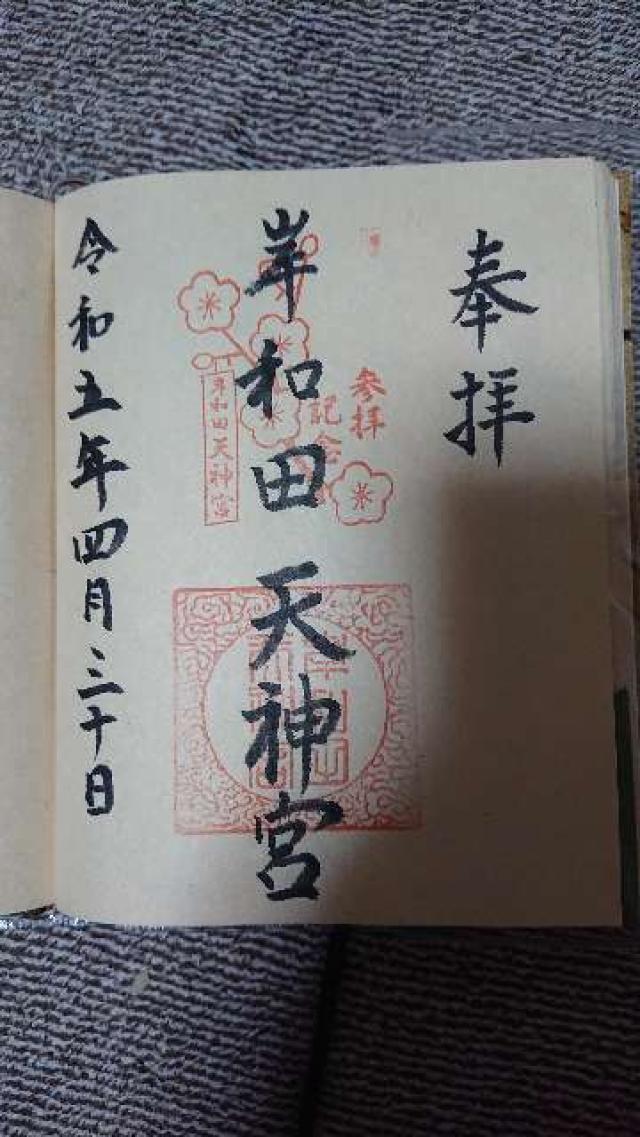 奉拝
参拝
記念
岸和田天神宮
岸和田天神宮
令和五年四月三十日